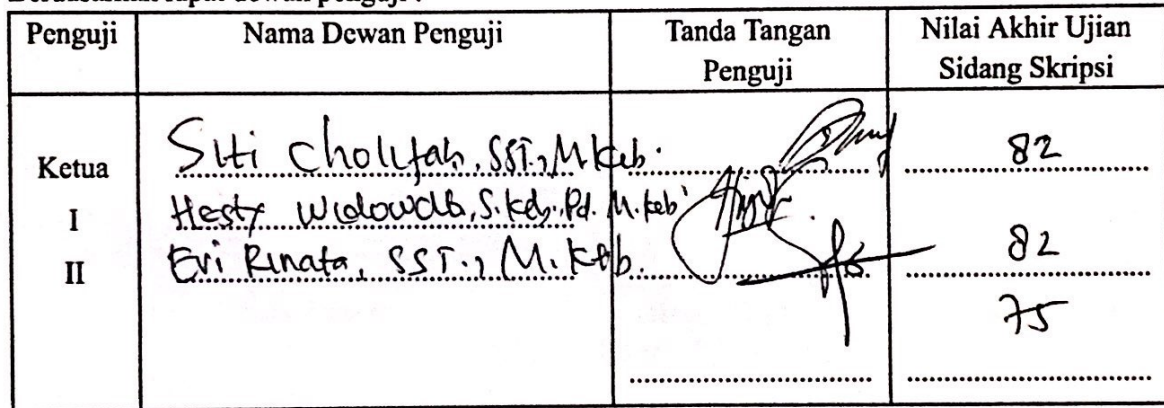 Penguji Nama Dewan Penguji Tanda Tangan Penguji Nilai Akhir Ujian Sidang Skripsi
Ketua Siti Cholifah, SST., M.Keb. 82
I Hesty Widowati, S.Keb., Pd. M.Keb 82
II Evi Rinata, SST., M.Keb. 75